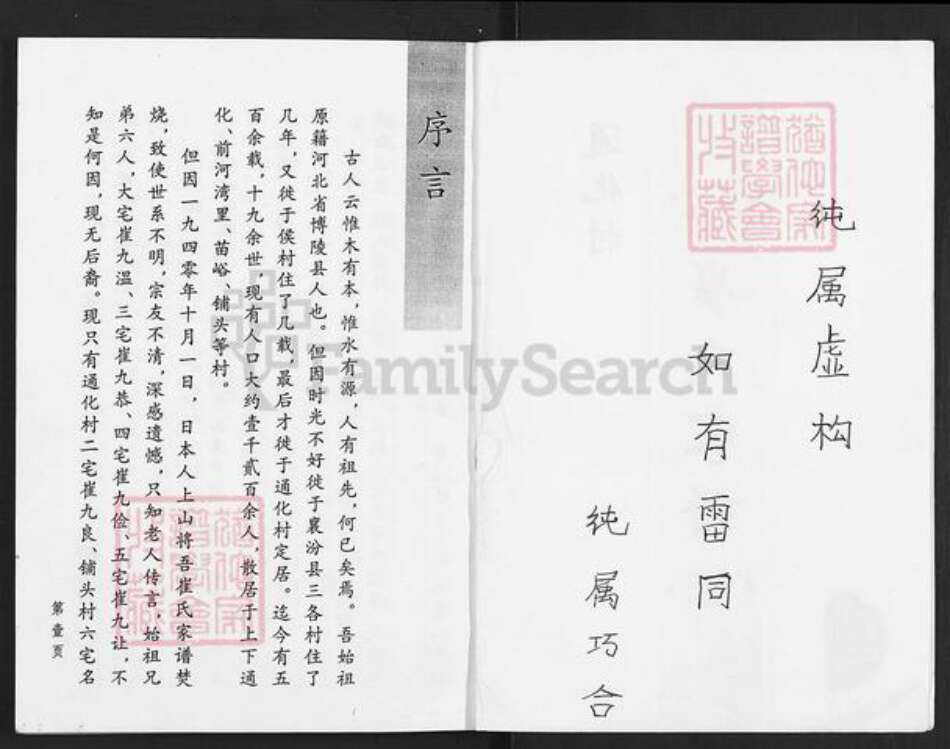 纯属虚构
如有雷同
纯属巧合
序言
古人云惟木有本，惟水有源，人有祖先，何已矣焉。吾始祖
原籍河北省博陵县人也。但因时光不好徙于襄汾县三各村住了
几年，又徙于侯村住了几载，最后才徙于通化村定居。迄今有五
百余载，十九余世，现有人口大约壹千贰百余人，散居于上下通
化、前河湾里、苗峪、铺头等村。
但因一九四零年十月一日，日本人上山将吾崔氏家谱焚
烧，致使世系不明，宗友不清，深感遗憾，只知老人传言，始祖兄
弟六人，大宅崔九温、三宅崔九恭、四宅崔九俭、五宅崔九让，不
知是何因，现无后裔。现只有通化村二宅崔九良、铺头村六宅名
第壹页
FamilySearch
譜學會
收藏
譜學會
收藏